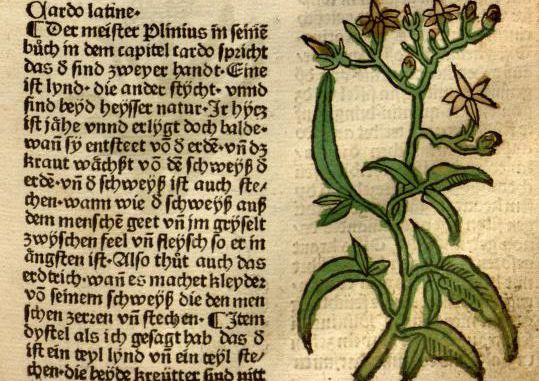 Cardo latine·
¶ Der meister Plinius in seinē
bůch in dem capitel cardo spricht
das ď sind zweyer handt· Eine
ist lynd· die ander stycht· vnnd
sind beyd heysser natur· Ir hycz
ist jähe vnnd erlygt doch balde·
wañ sy entsteet vō ď erde· vñ dz
kraut wächßt vō dē schweyß ď
erde· vñ ď schweyß ist auch ste⸗
chen· wann wie ď schweyß auß
dem menschē geet vñ jm gryselt
zwyschen feel vñ fleysch so er in
ängsten ist· Also thůt auch das
erdtrich· wañ es machet kleyder
vō seinem schweyß die den men
schen zerren vñ stechen· ¶ Item
dystel als ich gesagt hab das ď
ist ein teyl lynd vñ ein teyl ste⸗
chen· die beyde kreütter sind nitt